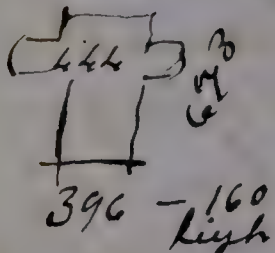 444
396 - 160
high